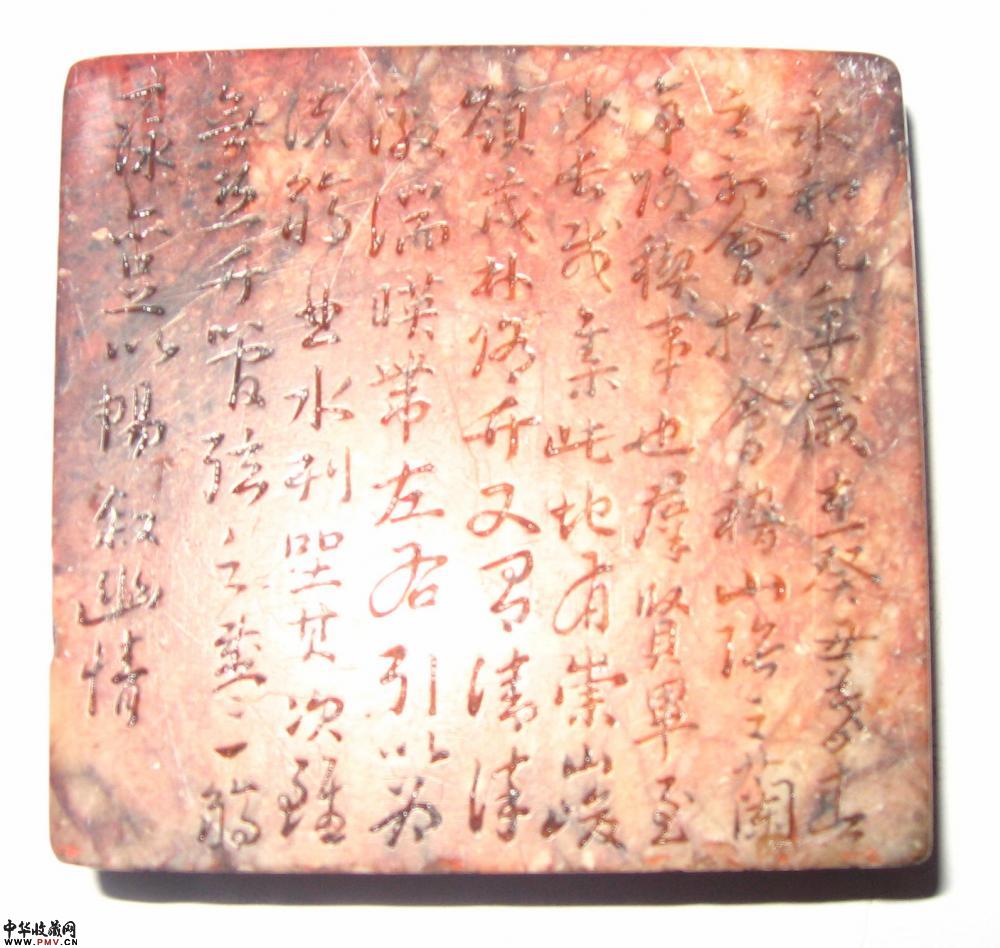 永和九年歲在癸丑暮春
之初會於會稽山陰之蘭
亭脩禊事也羣賢畢至
少長咸集此地有崇山峻
領茂林脩竹又有清流
激湍暎帶左右引以為
流觴曲水列坐其次雖
無絲竹管弦之盛一觴
詠亦足以暢敘幽情
中华收藏网
www.PMV.CN